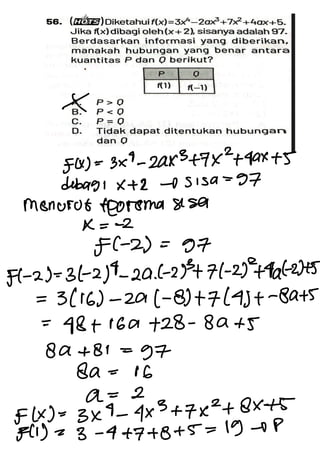 56. (HOTS) Diketahui f(x)=3x⁴−2ax³+7x²+4ax+5.
Jika f(x) dibagi oleh (x + 2), sisanya adalah 97.
Berdasarkan informasi yang diberikan,
manakah hubungan yang benar antara
kuantitas P dan Q berikut?
P Q
f(1) f(−1)
A. P > Q
B. P < Q
C. P = Q
D. Tidak dapat ditentukan hubungan
dan Q
f(x) = 3x⁴ − 2ax³ + 7x² + 4ax + 5
dibagi x+2 → sisa = 97
menurut teorema sisa
x = −2
f(−2) = 97
f(−2) = 3(−2)⁴ − 2a.(−2)³ + 7(−2)² + 4a(−2)+5
= 3(16) − 2a (−8) + 7(4) + −8a+5
= 48 + 16a + 28 − 8a + 5
8a + 81 = 97
8a = 16
a = 2
f(x) = 3x⁴ − 4x³ + 7x² + 8x+5
f(1) = 3 − 4 + 7 + 8 + 5 = 19 → P